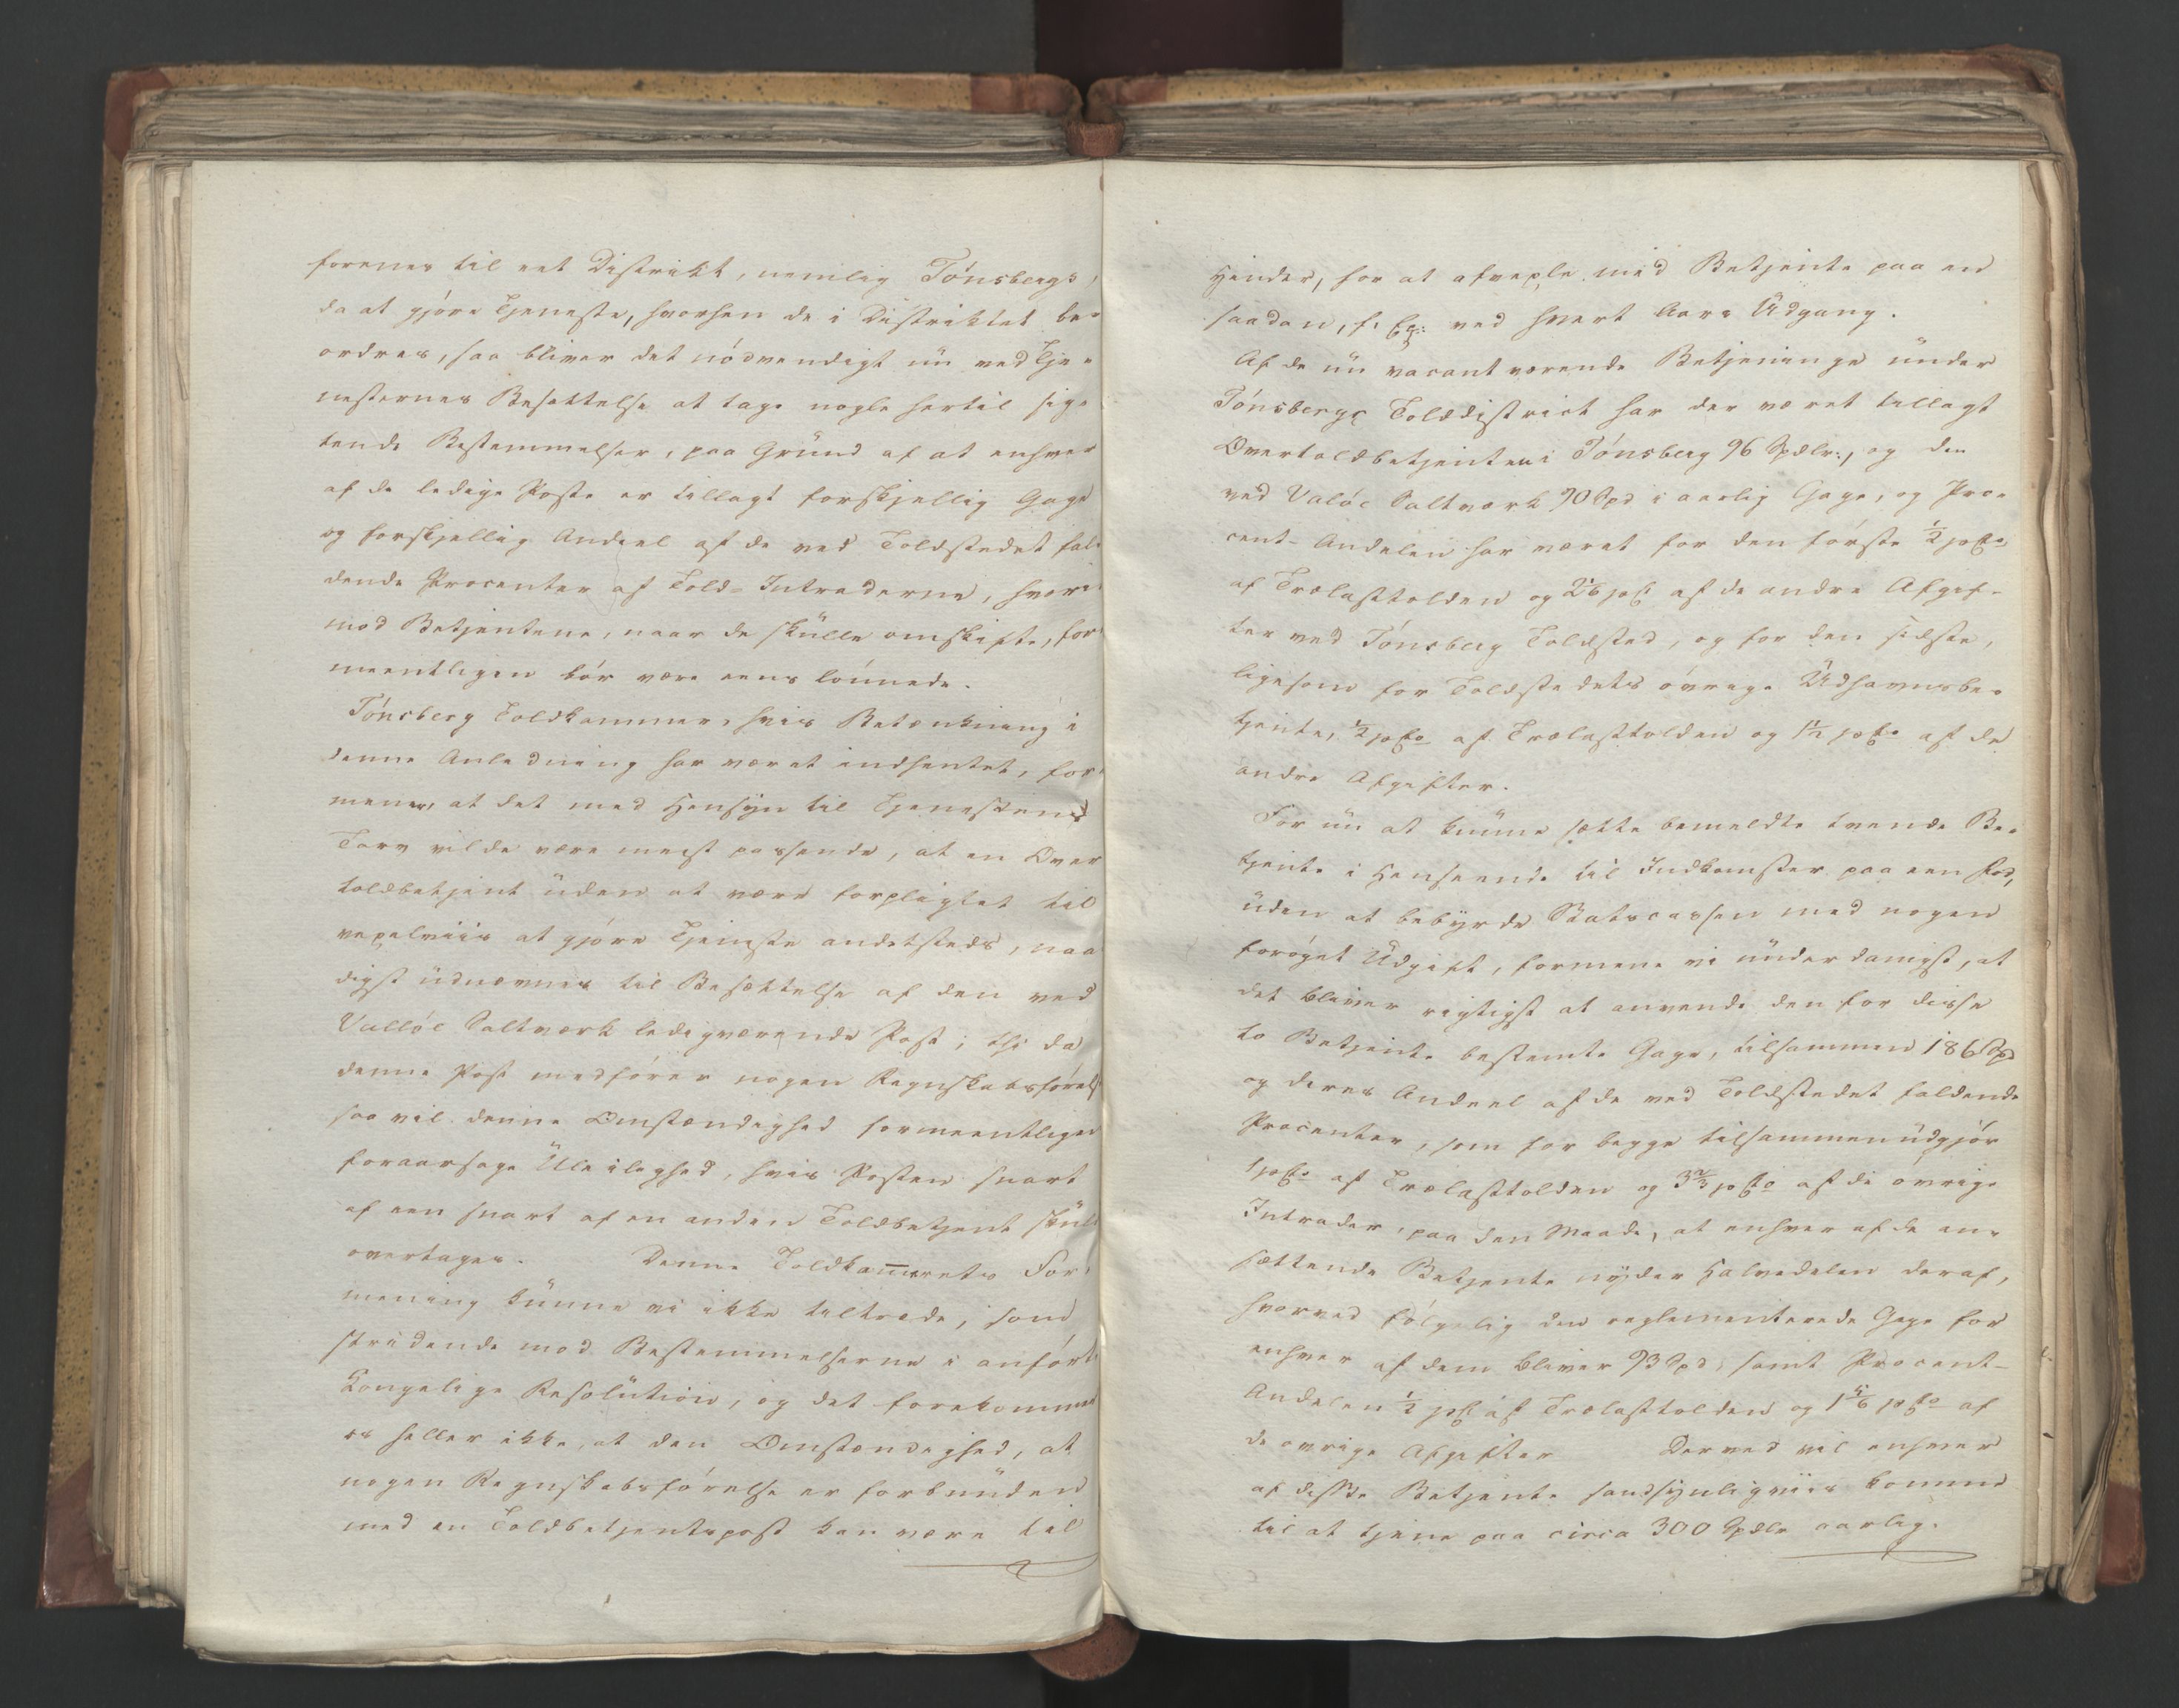 forenes til eet Distrikt, nemlig Tönsbergs,
da at gjöre Tjeneste, hvorhen de i Distriktet be-
ordres, saa bliver det nödvendigt nu ved Tje-
nesternes Besættelse at tage nogle hertil sig-
tende Bestemmelser, paa Grund af at enhver
af de ledige Poste er tillagt forskjellig Gage
og forskjellig Andeel af de ved Toldstedet fal-
dende Procenter af Told-Intraderne, hvori-
mod Betjentene, naar de skulle omskifte, for-
meentligen bör være eens lönnede.
Tönsberg Toldkammer, hvis Betænkning i
denne Anledning har været indhentet, for-
mener, at det med Hensyn til Tjenestens
Tarv vilde være meest passende, at en Over
toldbetjent uden at være forpligtet til
vexelviis at gjöre Tjeneste andetsteds, naa
digst udnævnes til Besættelse af den ved
Vallöe Saltværk ledigværende Post; thi da
denne Post medförer nogen Regnskabsförelse
saa vil denne Omstændighed formeentligen
foraarsage Uleilighed, hvis Posten snart
af een snart af en anden Toldbetjent skul
overtages. Denne Toldkammerets For-
mening kunne vi ikke tiltræde, som
stridende mod Bestemmelserne i anförte
Kongelige Resolution, og det forekommer
os heller ikke, at den Omstændighed, at
nogen Regnskabsförelse er forbunden
med en Toldbetjentspost kan være til
Hinder, for at afvexle med Betjente paa en
saadan, f. Ex: ved hvert Aars Udgang.
Af de nu vacantværende Betjeninge under
Tönsbergs Tolddistrict har der været tillagt
Overtoldbetjenten i Tönsberg 96 Spdlr:, og den
ved Valöe Saltværk 90 Spd i aarlig Gage, og Pro-
cent-Andelen har været for den förste ½ pCto
af Trælasttolden og 2⅙ pC. af de andre Afgif-
ter ved Tönsberg Toldsted, og for den sidste,
ligesom for Toldstedets övrige Udhavnsbe-
tjente, ½ pCto af Trælasttolden og 1½ pCto af de
andre Afgifter.
For nu at kunne sætte bemeldte tvende Be-
tjente i Henseende til Indkomster paa een Fod,
uden at bebyrde Statscassen med nogen
foröget Udgift, formene vi underdanigst, at
det bliver rigtigst at anvende den for disse
to Betjente bestemte Gage, tilsammen 186 Spd
og deres Andeel af de ved Toldstedet faldende
Procenter, som for begge tilsammen udgjör
1 pCto af Trælasttolden og 3⅔ pCto af de övrige
Intrader, paa den Maade, at enhver af de an-
sættende Betjente nyder Halvdelen deraf,
hvorved fölgelig den reglementerede Gage for
enhver af dem bliver 93 Spd, samt Procent-
Andelen ½ pC. af Trælasttolden og 1⅚ pCto af
de övrige Afgifter Derved vil enhver
af disse Betjente sandsynligviis komme
til at tjene paa circa 300 Spdlr aarlig.